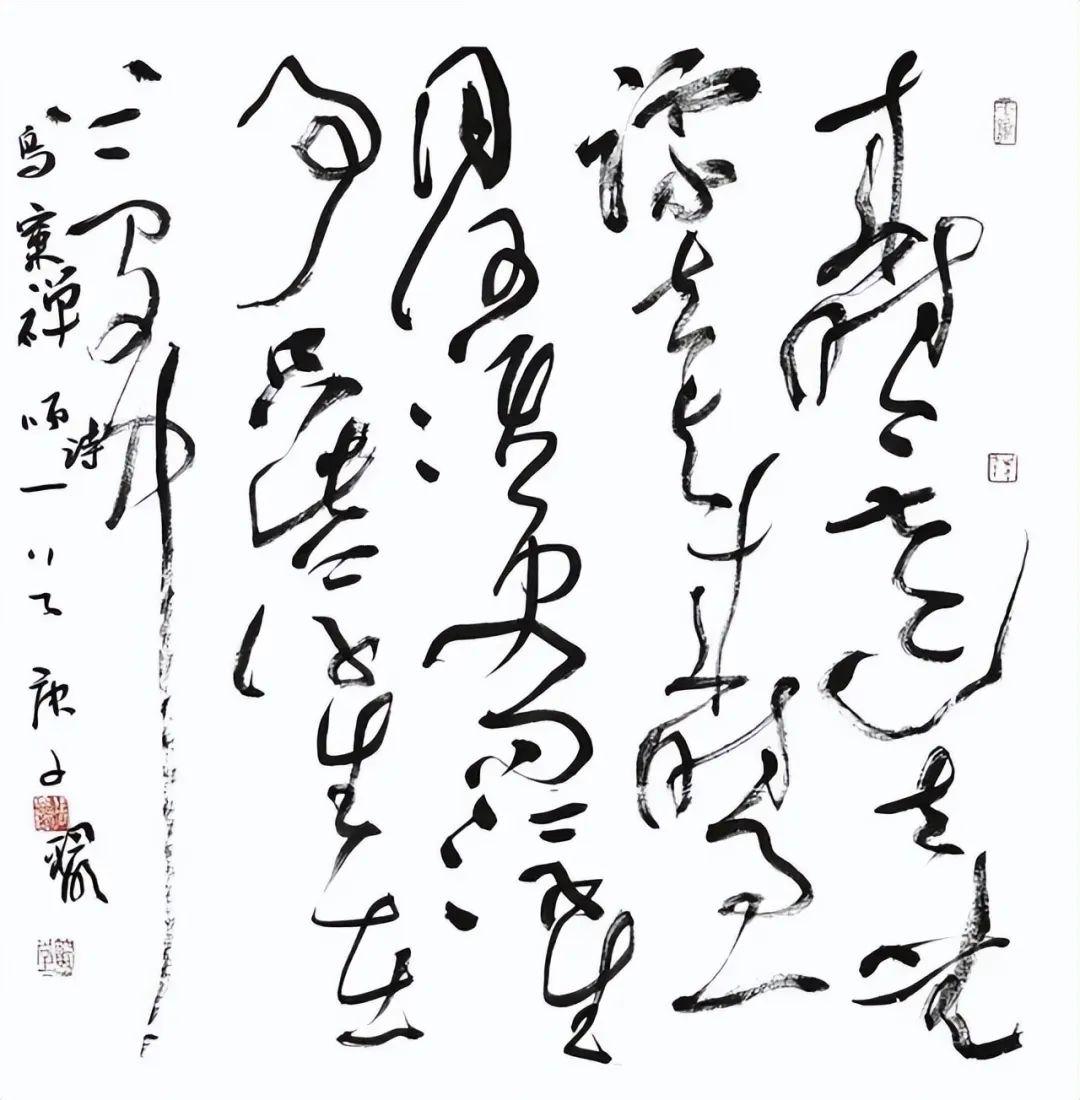 来时无迹去无
踪去与来时事一
同何须更问浮生
事只此浮生在
梦中
鸟窠禅师诗一首 庚子